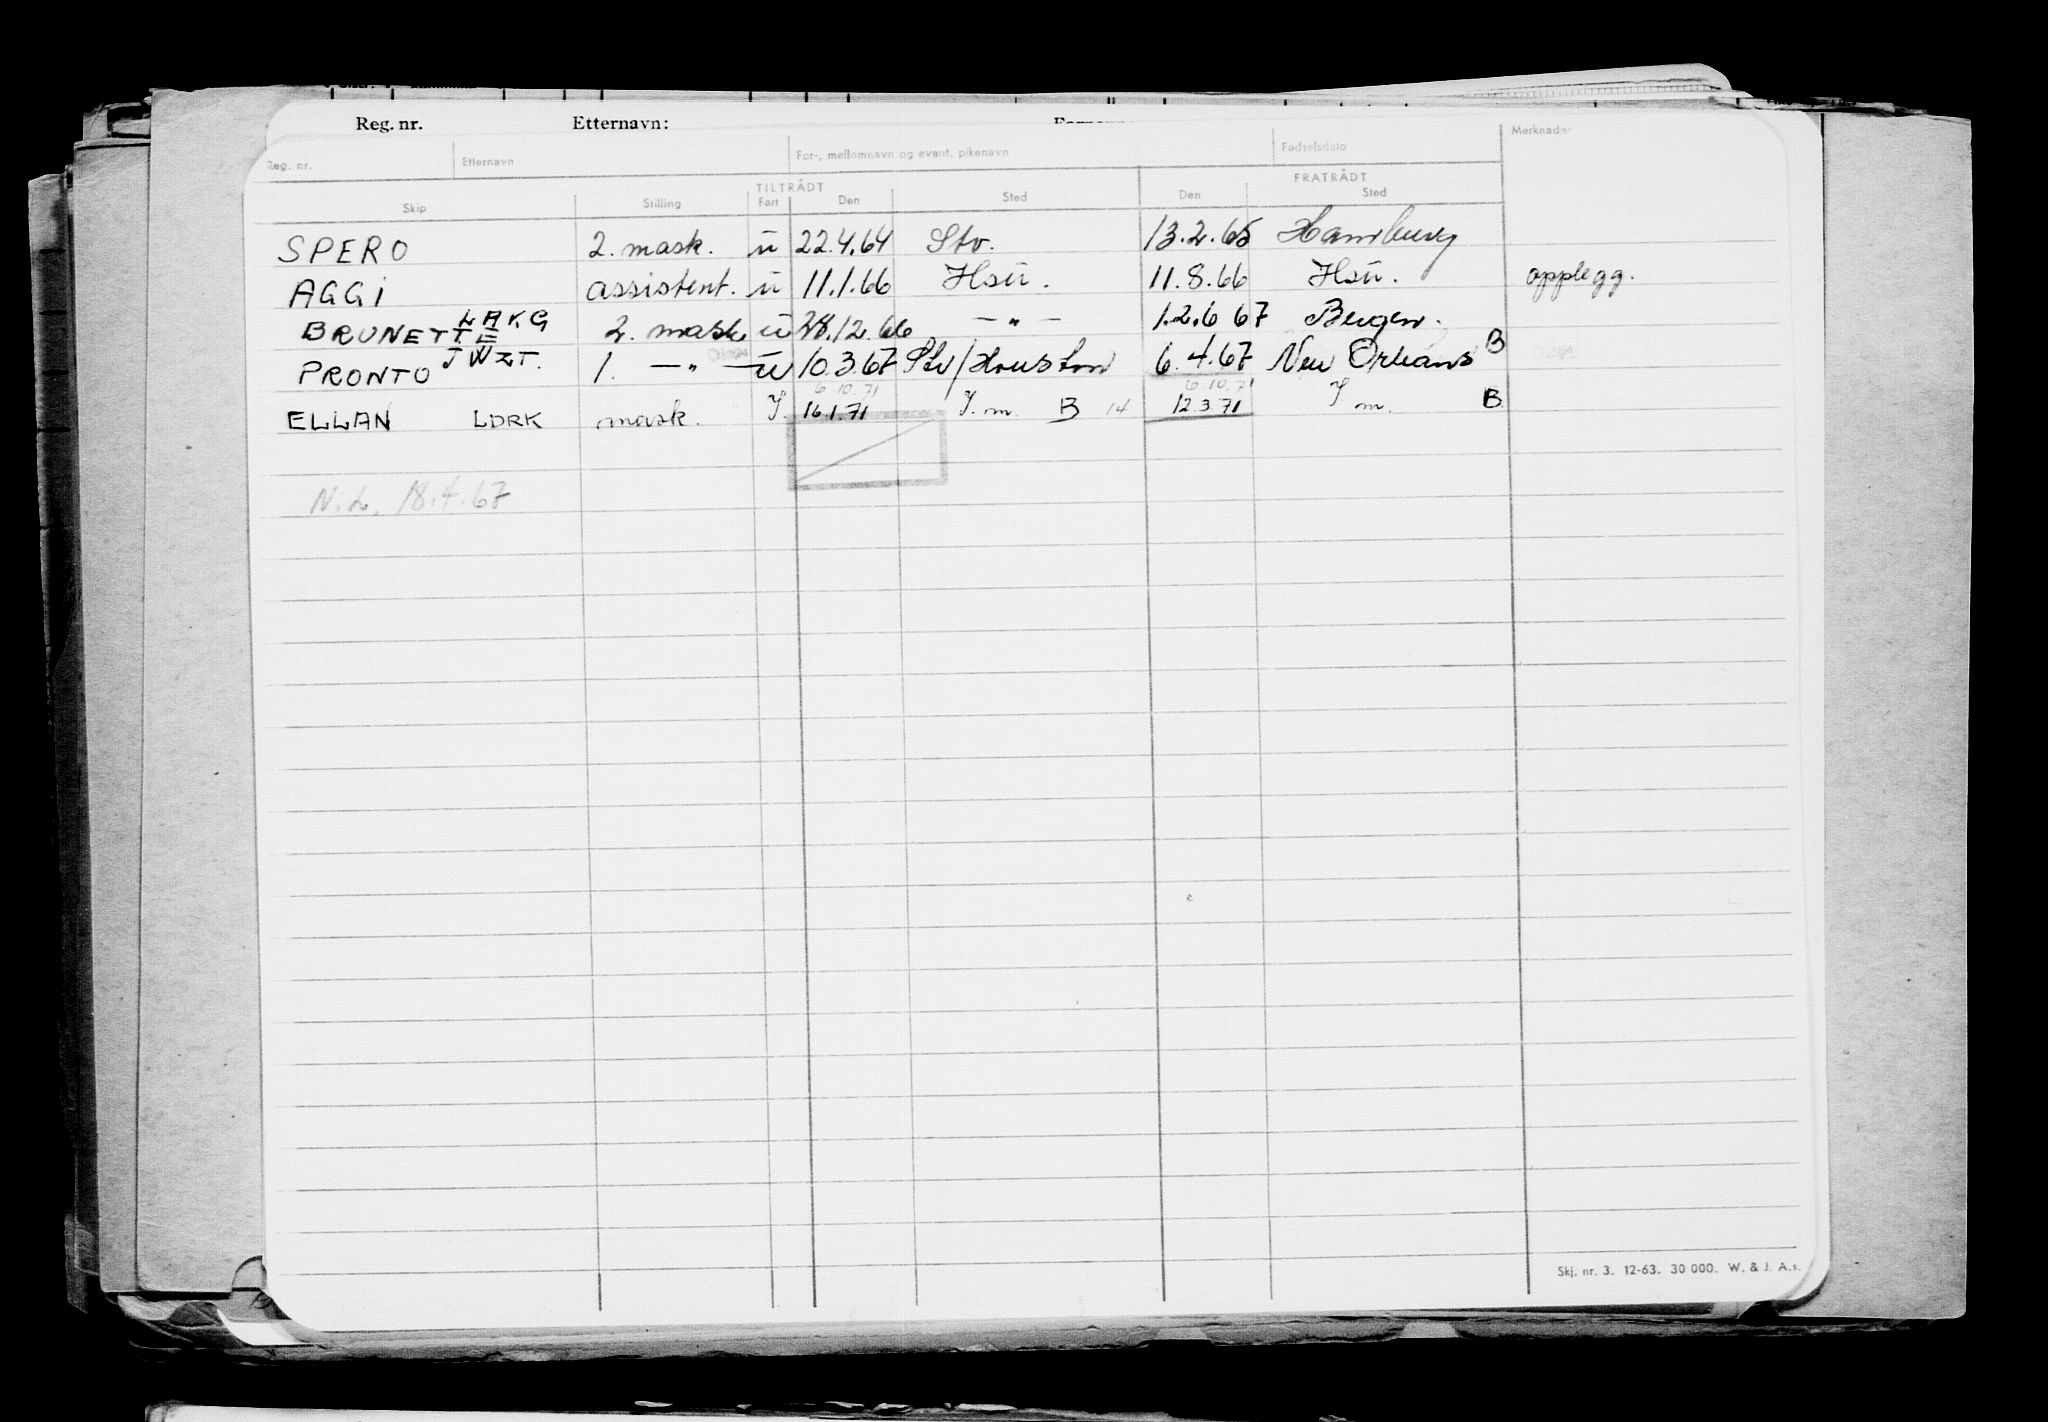 Reg. nr. Etternavn:
Reg. nr. Etternavn For-, mellomnavn og event. pikenavn Fødselsdato Merknader
TILTRÅDT FRATRÅDT
Skip Stilling Fart Den Sted Den Sted
SPERO 2. mask. u 22.4.64 Stv. 13.2.65 Hamburg
AGGI assistent. u 11.1.66 Hsu. 11.8.66 Hsu. opplegg.
BRUNETTE LAKG 2. mask u 28.12.66 — " — 1.2.6 67 Bergen.
PRONTO JWZT. 1. — " — u 10.3.67 Stv/Houston 6.4.67 New Orleans B
6.10.71 6.10.71
ELLAN LDRK mask. J. 16.1.71 J. m. B 14 12.3.71 J m. B
N.L. 18.4.67
Skj. nr. 3. 12-63. 30 000. W. & J. A.s.